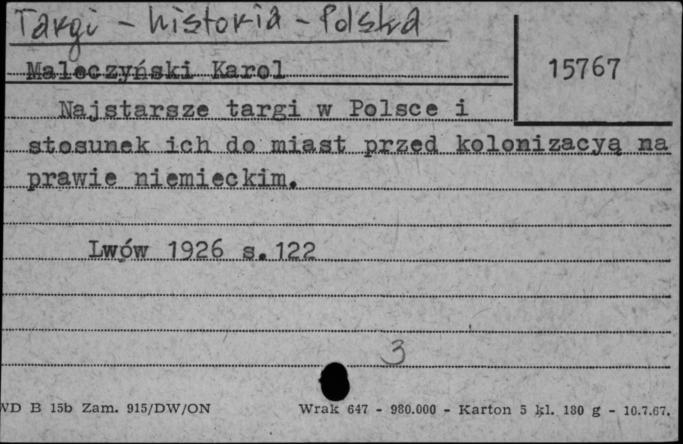 Targi - historia - Polska
Maleczyński Karol
15767
Najstarsze targi w Polsce i
stosunek ich do miast przed kolonizacyą na
prawie niemieckim.
Lwów 1926 s. 122
3
WD B 15b Zam. 915/DW/ON
Wrak 647 - 980.000 - Karton 5 kl. 180 g - 10.7.67.